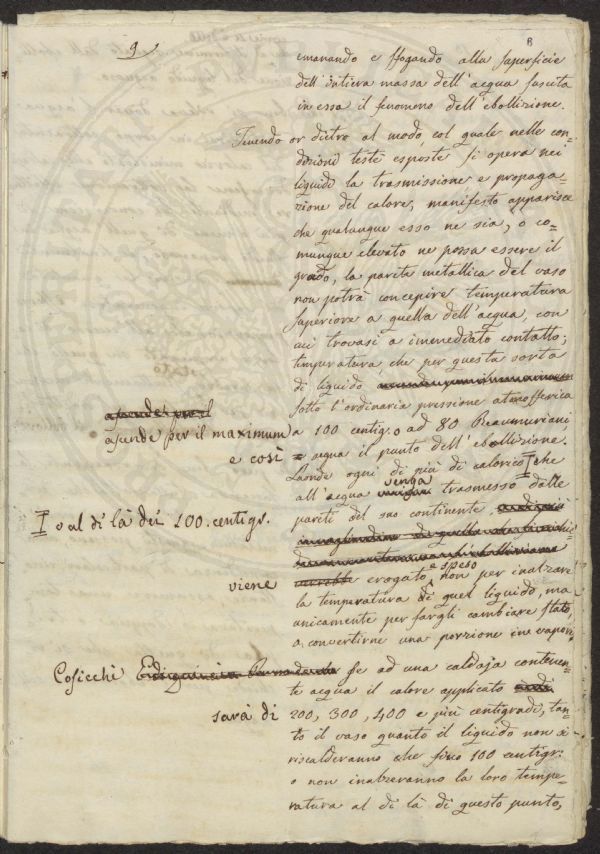 9
6
emanando e sfogando alla superficie
dell'intiera massa dell'acqua suscita
in essa il fenomeno dell'ebollizione.
Tenendo or dietro al modo col quale nelle con-
dizioni testè esposte si opera nei
liquidi la trasmissione e propaga-
zione del calore, manifesto apparisce
che qualunque esso ne sia, o co-
munque elevato ne possa essere il
grado, la parete metallica del vaso
non potrà concepire temperatura
superiore a quella dell'acqua, con
cui trovasi a immediato contatto;
temperatura, che per questa sorta
di liquido
sotto l'ordinaria pressione atmosferica
ascende per il
ascende per il maximum a 100 centig. o ad 80 Reaumuriani
e così = acqua il punto dell'ebollizione.
Laonde ogni di più di calorico I che
all'acqua venga trasmesso dalle
I o al di là dei 100. centigr.
pareti del suo continente,
viene erogato e speso non per inalzare
la temperatura di quel liquido, ma
unicamente per fargli cambiare stato,
o convertirne una porzione in vapori.
Cosicchè se ad una caldaja contenen-
te acqua il calore applicato
sarà di 200, 300, 400 e più centigradi, tan-
to il vaso quanto il liquido non si
riscalderanno che fino 100 centigr:
o non inalzeranno la loro tempe-
ratura al di là di questo punto,